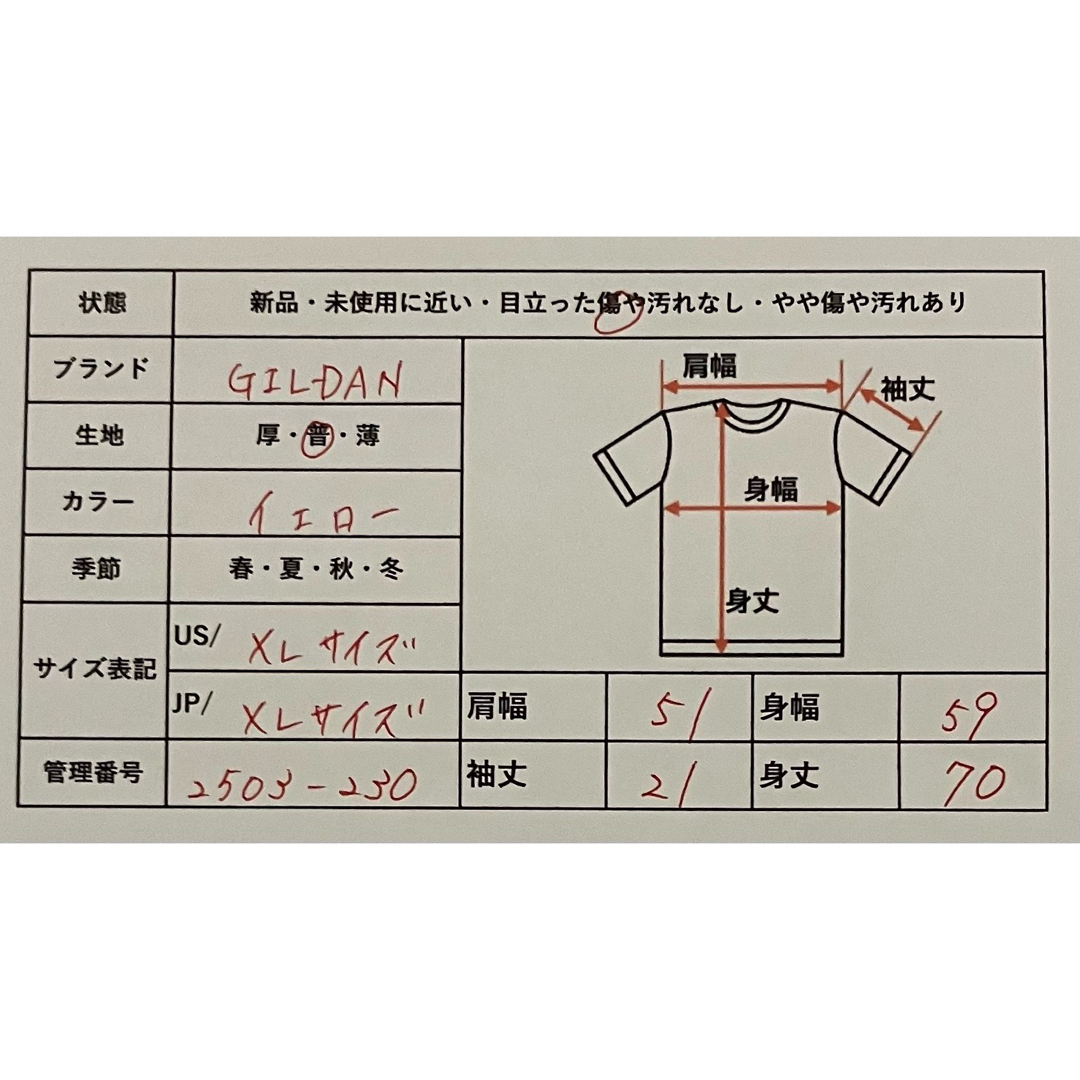 状態 新品・未使用に近い・目立った傷や汚れなし・やや傷や汚れあり
ブランド GILDAN
生地 厚・普・薄
カラー イエロー
季節 春・夏・秋・冬
サイズ表記
US/ XLサイズ
JP/ XLサイズ
管理番号 2503-230
肩幅
袖丈
身幅
身丈
肩幅 51 身幅 59
袖丈 21 身丈 70